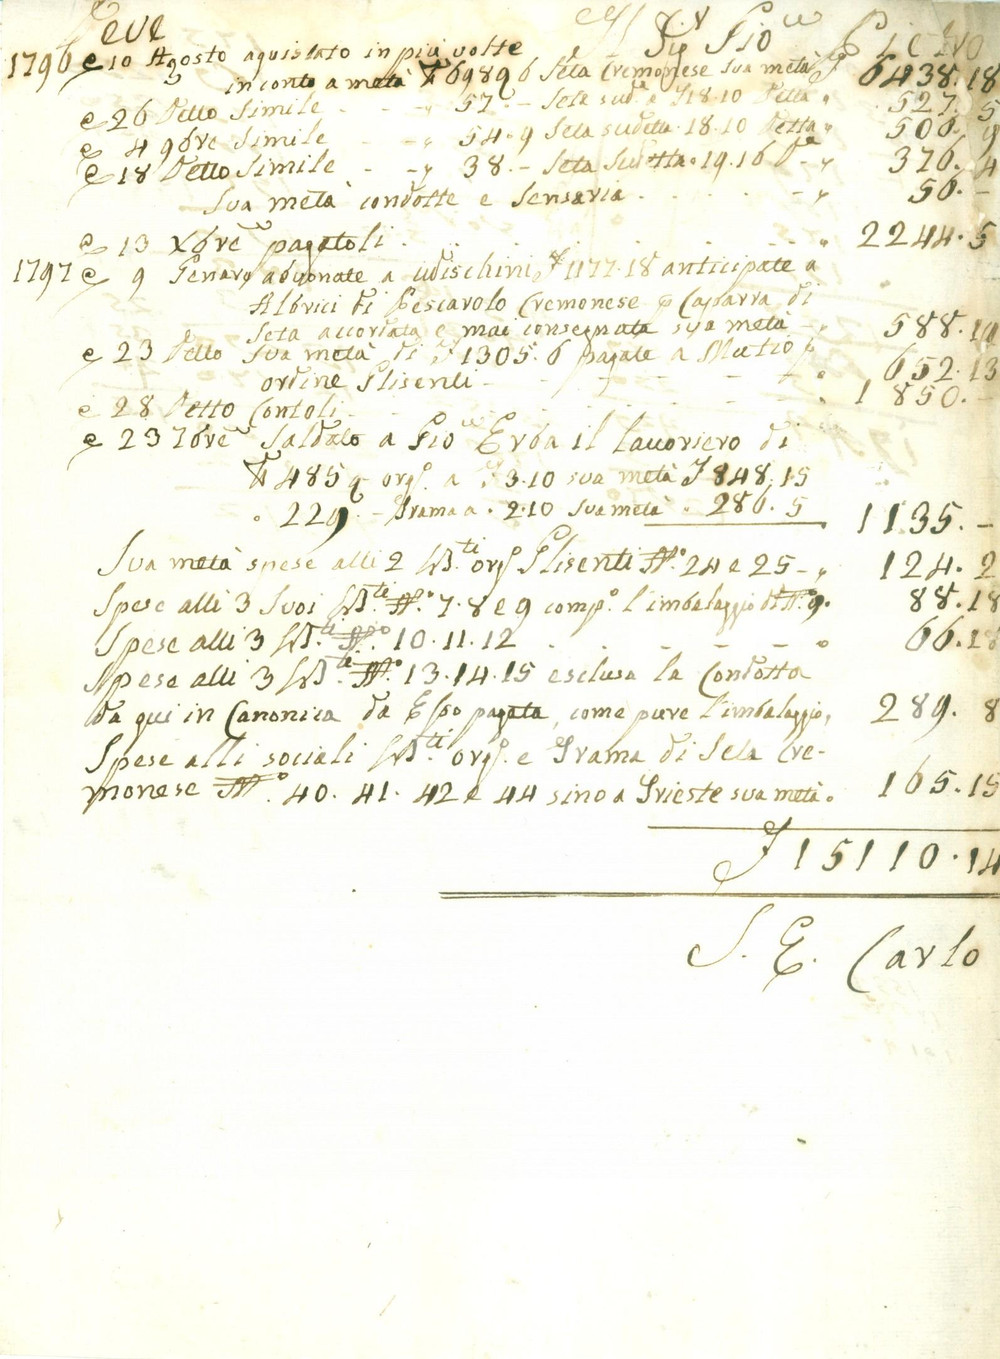 Deve Il Sig.r Gio Pietro
1796 e 10 Agosto aquistato in più volte
in conto a metà 698 9 6 Seta Cremonese sua metà 6438.18
e 26 Detto Simile - - " 57 - Seta sud.a a 18.10 Detta " 527.5
e 4 9bre Simile - - " 54.9 Seta sudetta. 18.10 Detta " 506.9
e 18 Detto Simile - - " 38. - Seta Sudetta. 19.16 D.a - " 376.4
Sua metà condotte e Sensaria - " 50. -
e 13 Xbre pagatoli . " 2244.5
1797 e 9 Genaro abbonate a Udischini 1177.18 anticipate a
Albrici di Pescarolo Cremonese p Caparra di
Seta accordata e mai consegnata sua metà - " 588.19
e 23 Detto Sua metà di 1305.6 pagate a Mutio p
ordine Glisenti - 652.13
e 28 Detto Contoli - 1850. -
e 23 7bre Saldato a Gio Erba il lavoriero di
485 9 org.o a 3.10 sua metà 848.15
. 229 - Trama a . 2.10 Sua metà . 286.5 1135. -
Sua metà spese alli 2 B.ti org. Glisenti N.o 24 e 25 - " 124.2
Spese alli 3 Suoi B.ti N.o 7.8 e 9 comp.o l'imbalaggio di N.o 9. 88.18
Spese alli 3 B.ti N.o 10.11.12 66.18
Spese alli 3 B.ti N.o 13.14.15 esclusa la Condotta
da qui in Canonica da Esso pagata, come pure l'imbalaggio, 289.8
Spese alli sociali B.ti org. e Trama di Seta Cre-
monese N.o 40. 41. 42 e 44 sino a Trieste sua metà. 165.15
15110.14
S. E. Carlo